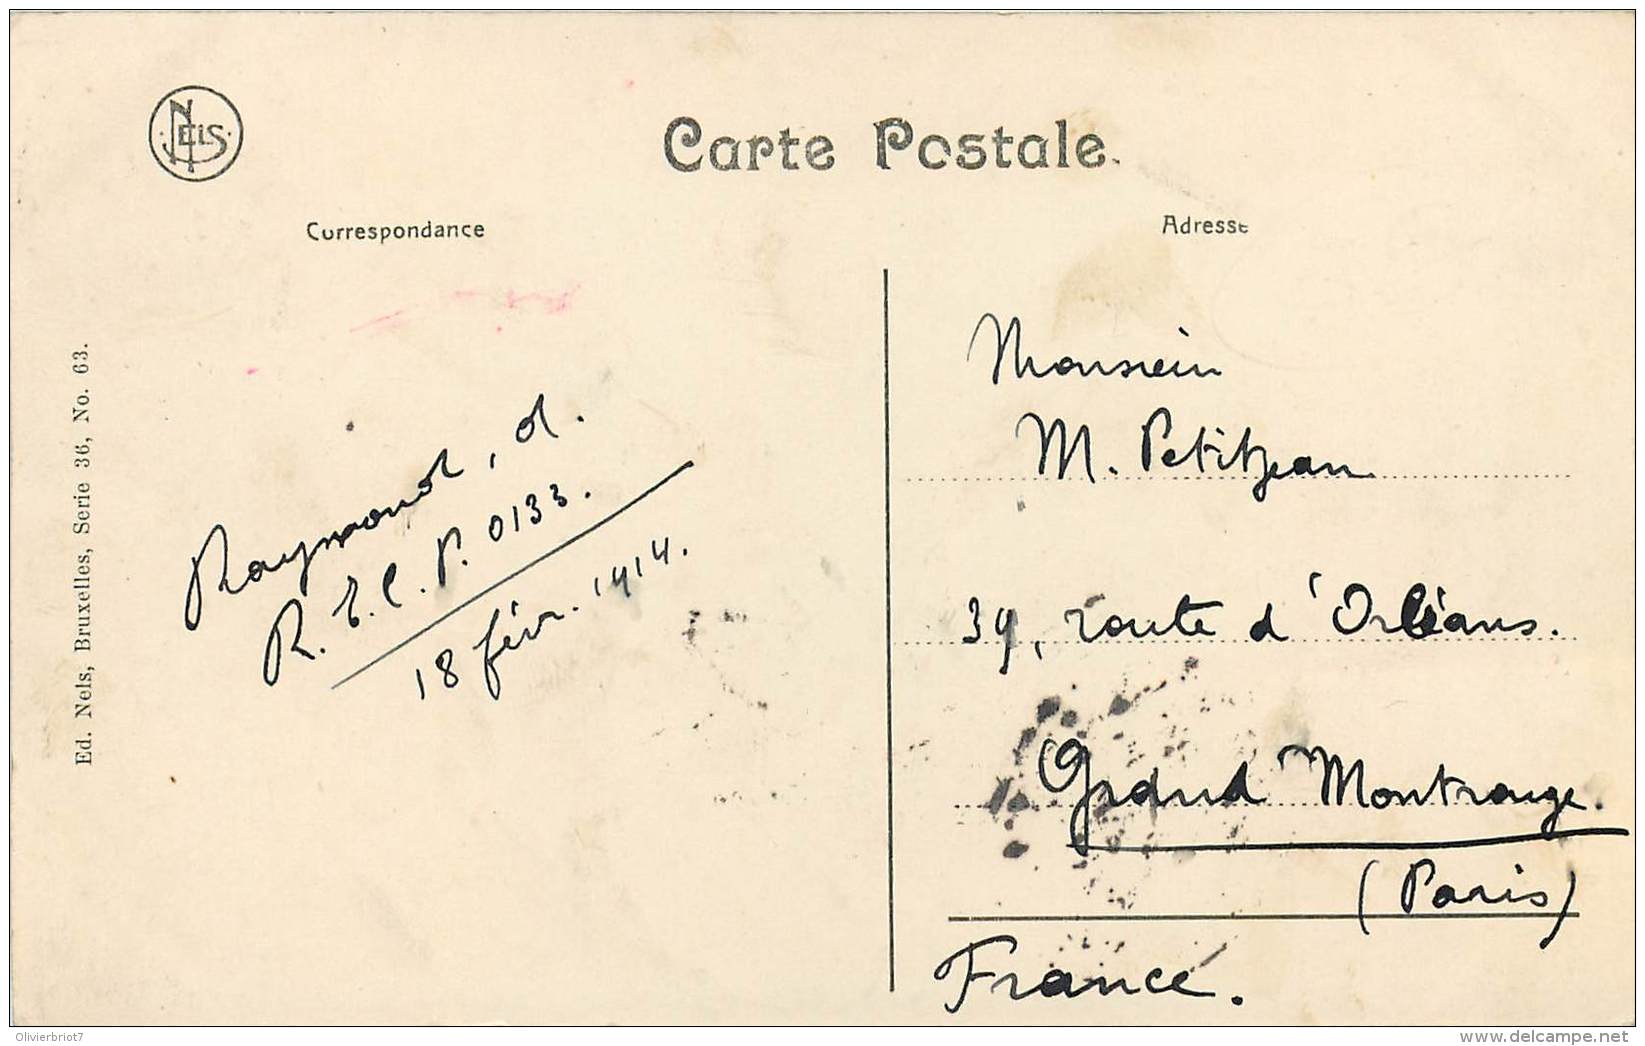 NELS
Carte Postale.
Correspondance
Adresse
Ed. Nels, Bruxelles, Serie 36, No. 63.
Raymond, d.
R. E. C. P. 0133.
18 févr. 1914.
Monsieur
M. Petitjean
39, route d'Orléans.
Grand Montrouge.
(Paris)
France.
Olivierbriot7
delcampe.net